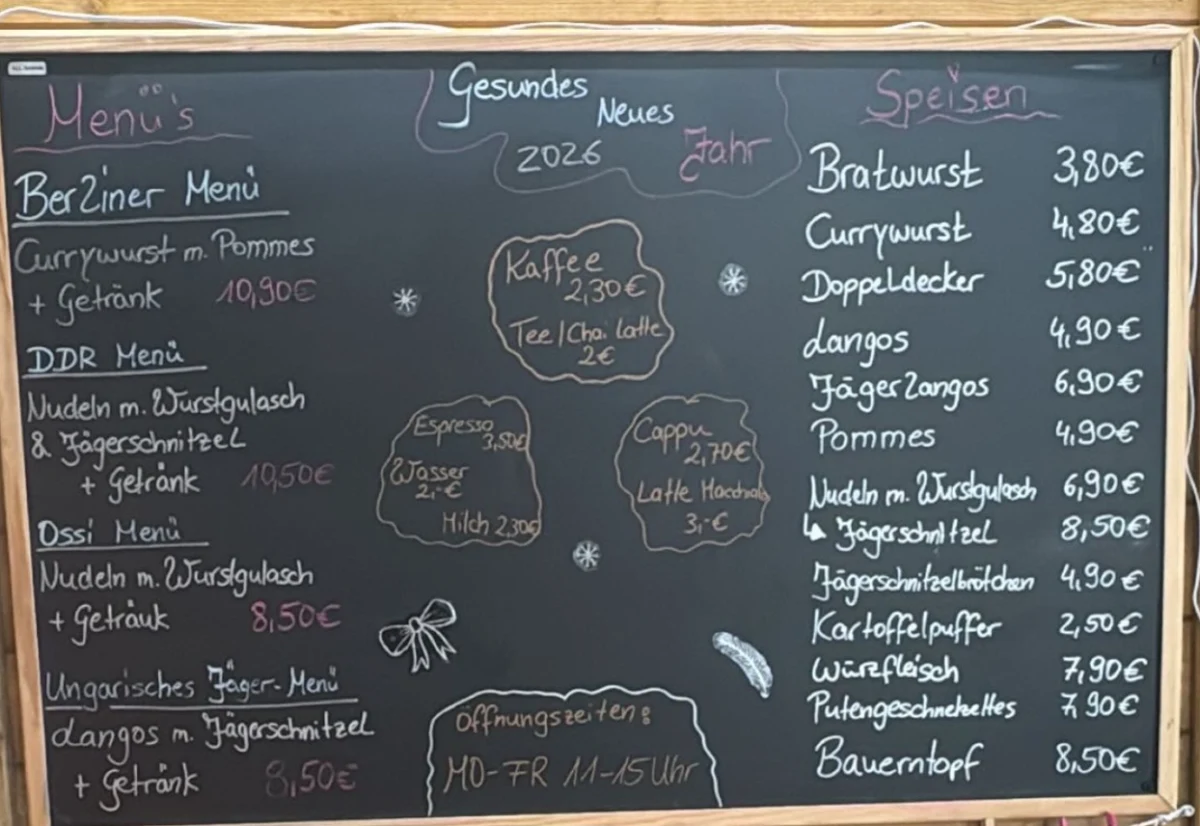 Menü's
Berliner Menü
Currywurst m. Pommes
+ Getränk 10,90€
DDR Menü
Nudeln m. Wurstgulasch
& Jägerschnitzel
+ Getränk 10,50€
Ossi Menü
Nudeln m. Wurstgulasch
+ Getränk 8,50€
Ungarisches Jäger-Menü
Langos m. Jägerschnitzel
+ Getränk 8,50€
Gesundes
Neues
2026 Jahr
Kaffee
2,30€
Tee/Chai Latte
2€
Espresso
3,50€
Wasser
2,-€
Milch 2,30€
Cappu
2,70€
Latte Macchiato
3,-€
Öffnungszeiten:
MO-FR 11-15 Uhr
Speisen
Bratwurst 3,80€
Currywurst 4,80€
Doppeldecker 5,80€
Langos 4,90€
Jägerlangos 6,90€
Pommes 4,90€
Nudeln m. Wurstgulasch 6,90€
↳ Jägerschnitzel 8,50€
Jägerschnitzelbrötchen 4,90€
Kartoffelpuffer 2,50€
Würzfleisch 7,90€
Putengeschnetzeltes 7,90€
Bauerntopf 8,50€